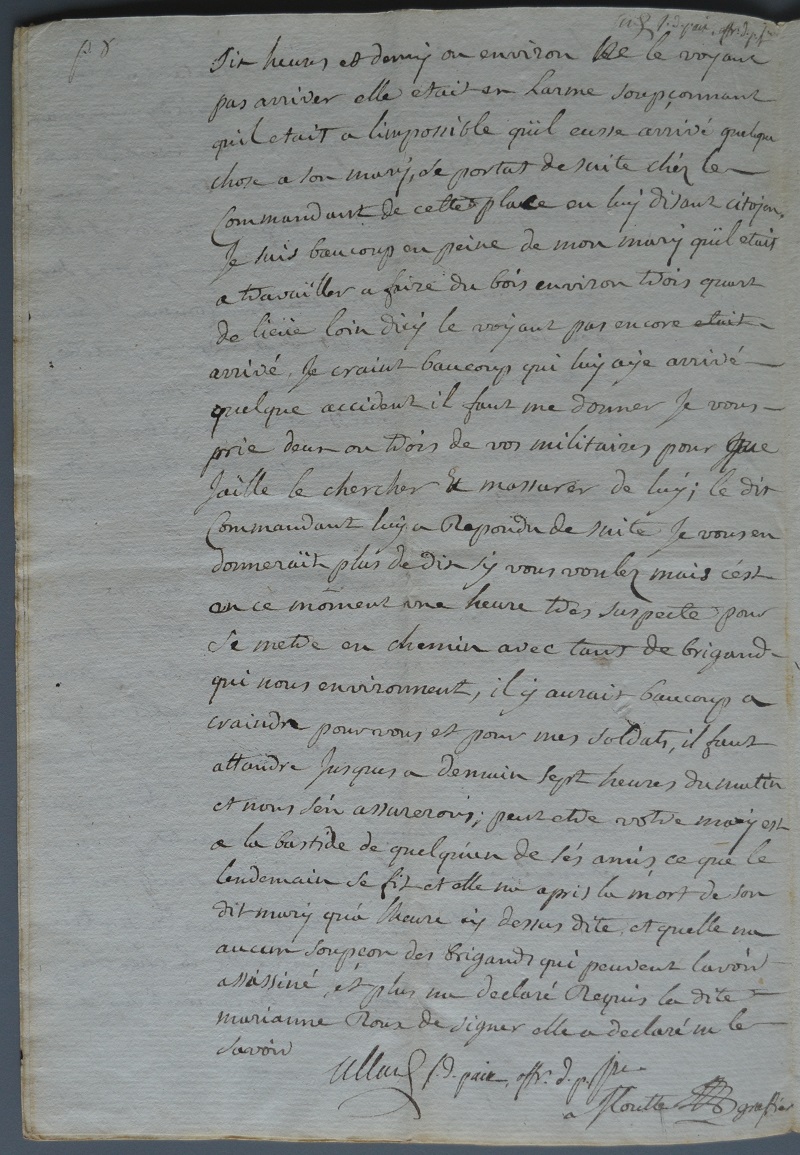 p. 8
j. d. paix, offr. d. p.
Dix heures et demy ou environ ne le voyant
pas arriver elle etait en Larme soupçonnant
quil etait a limpossible quil eusse arrivé quelque
chose a son mary, se portat de suite chéz le
Commandant de cette place en luy disant citoyen,
Je suis baucoup en peine de mon mary quil etait
a travailler a faire du bois environ trois quart
de lieüe loin dicy le voyant pas encore etait
arrivé, Je craint baucoup qui luy aÿe arrivé
quelque accident il faut me donner Je vous
prie deux ou trois de vos militaires pour que
Jaille le chercher Et massurer de luy; le dit
Commandant luy a Repondu de suite Je vous en
donnerait plus de dix sy vous voulez mais cést
en ce moment une heure tres suspecte pour
se metre en chemin avec tant de brigand
qui nous environnent, il y aurait baucoup a
craindre pour vous et pour mes soldats, il faut
attandre Jusques a demain sept heures du matin
et nous sén assurerons; peut etre votre mary est
a la bastide de quelquen de sés amis ce que le
lendemain se fit et elle na apris la mort de son
dit mary qua lheure cy dessus dite, et quelle na
aucun soupçon des brigands qui peuvent lavoir
assassiné, et plus na declaré Requis la dite
marianne Roux de signer elle a declaré ne le
savoir
j. d. paix, offr. d. p.
greffier